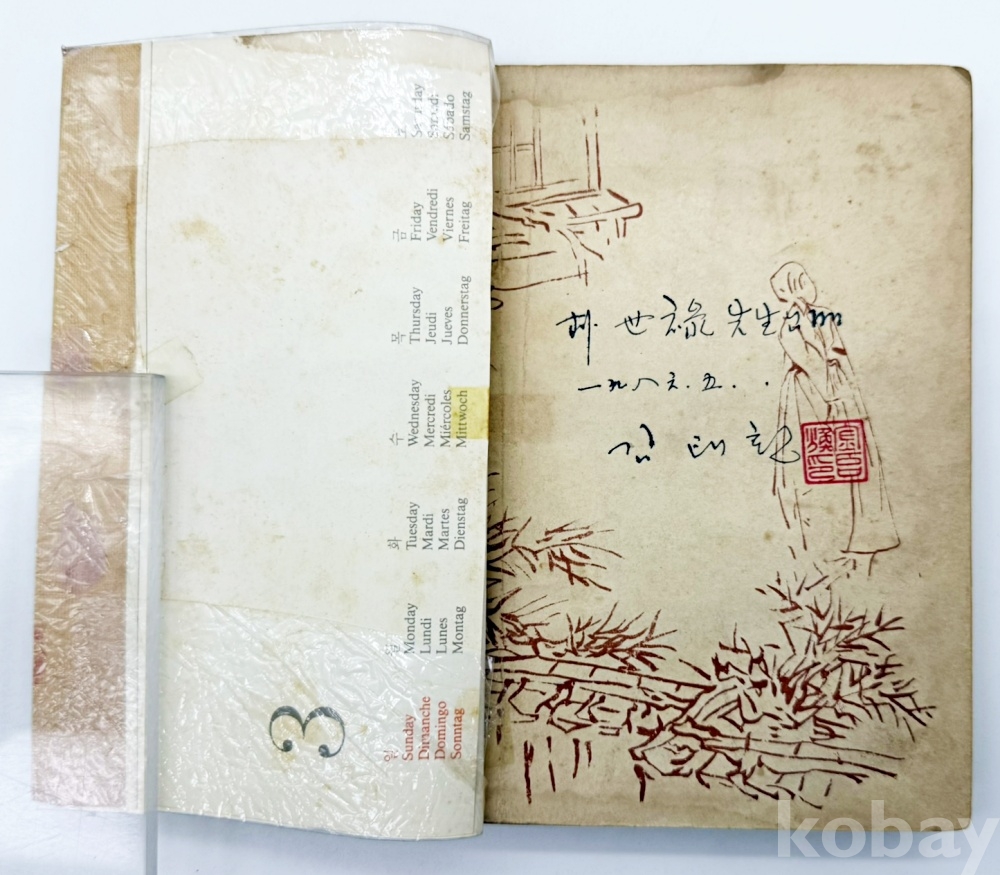 3
일
Sunday
Dimanche
Domingo
Sonntag
월
Monday
Lundi
Lunes
Montag
화
Tuesday
Mardi
Martes
Dienstag
수
Wednesday
Mercredi
Miércoles
Mittwoch
목
Thursday
Jeudi
Jueves
Donnerstag
금
Friday
Vendredi
Viernes
Freitag
Saturday
Samedi
Sábado
Samstag
世祿 先生
一九八六. 五. . .
kobay